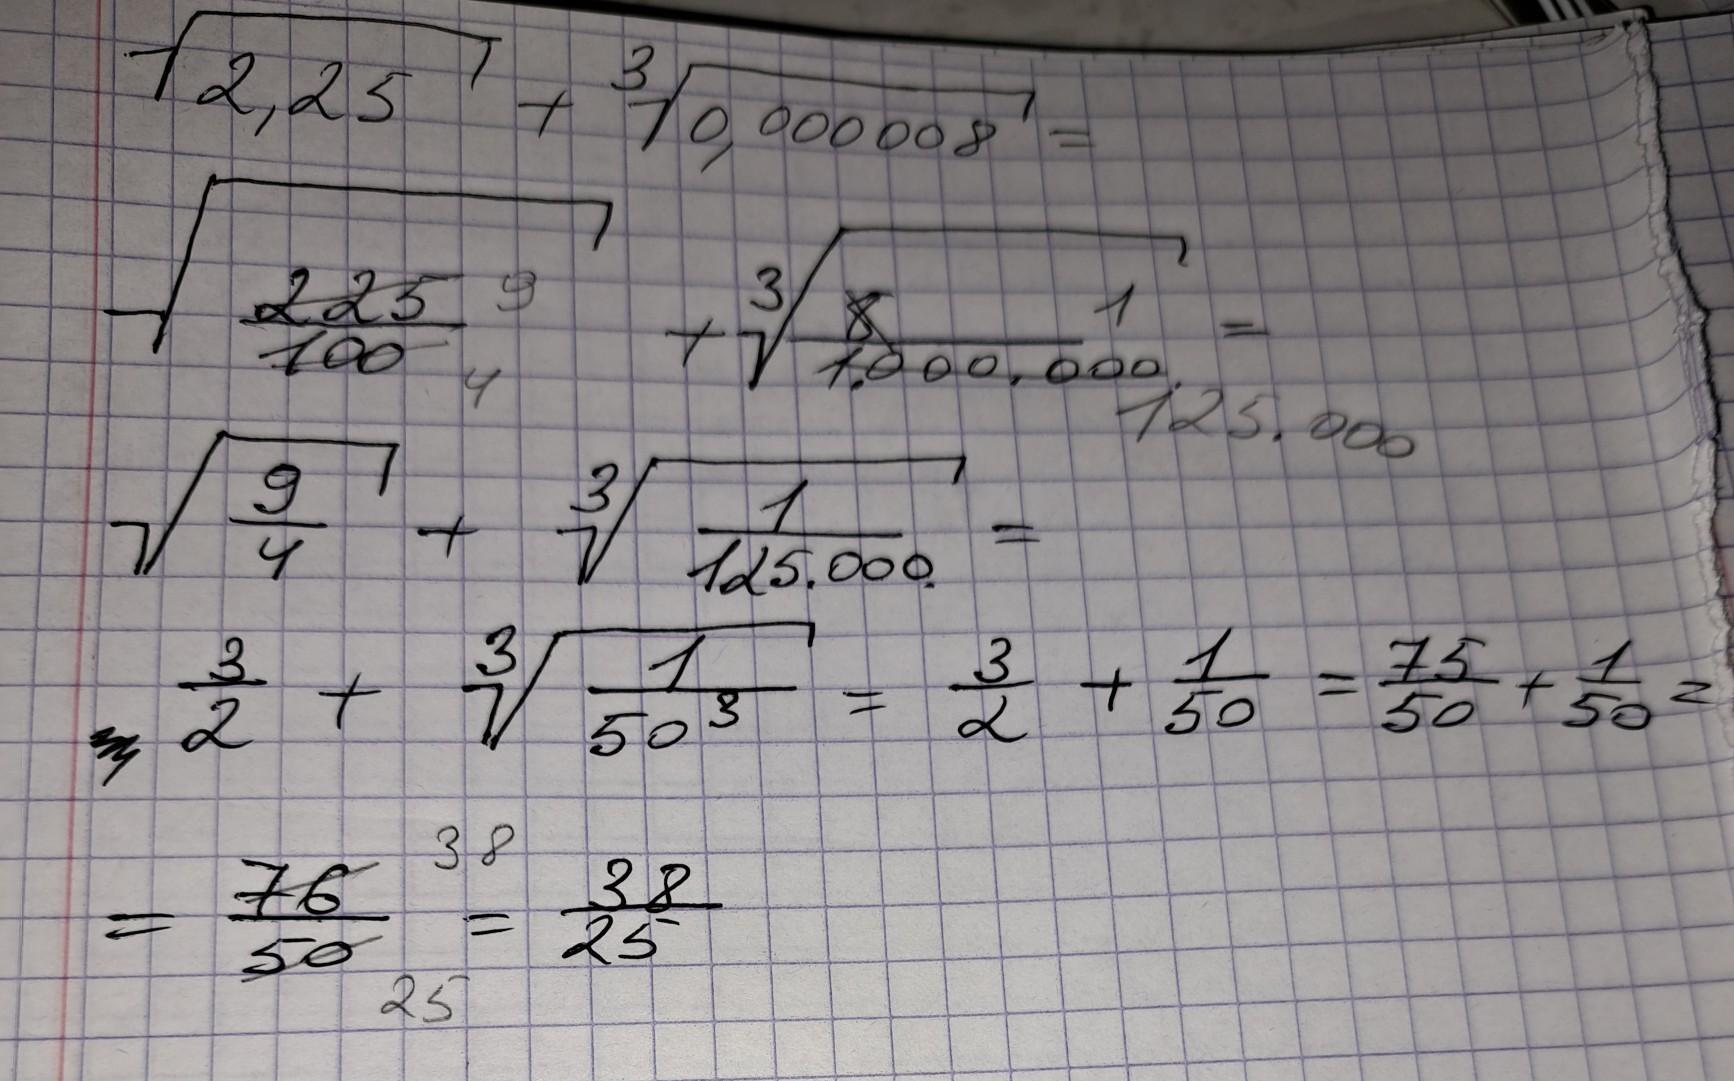 √2,25 + ∛0,000008 =
√(225/100) 9/4 + ∛(8/1.000.000) 1/125.000 =
√(9/4) + ∛(1/125.000) =
3/2 + ∛(1/50³) = 3/2 + 1/50 = 75/50 + 1/50 =
= 76/50 38/25 = 38/25